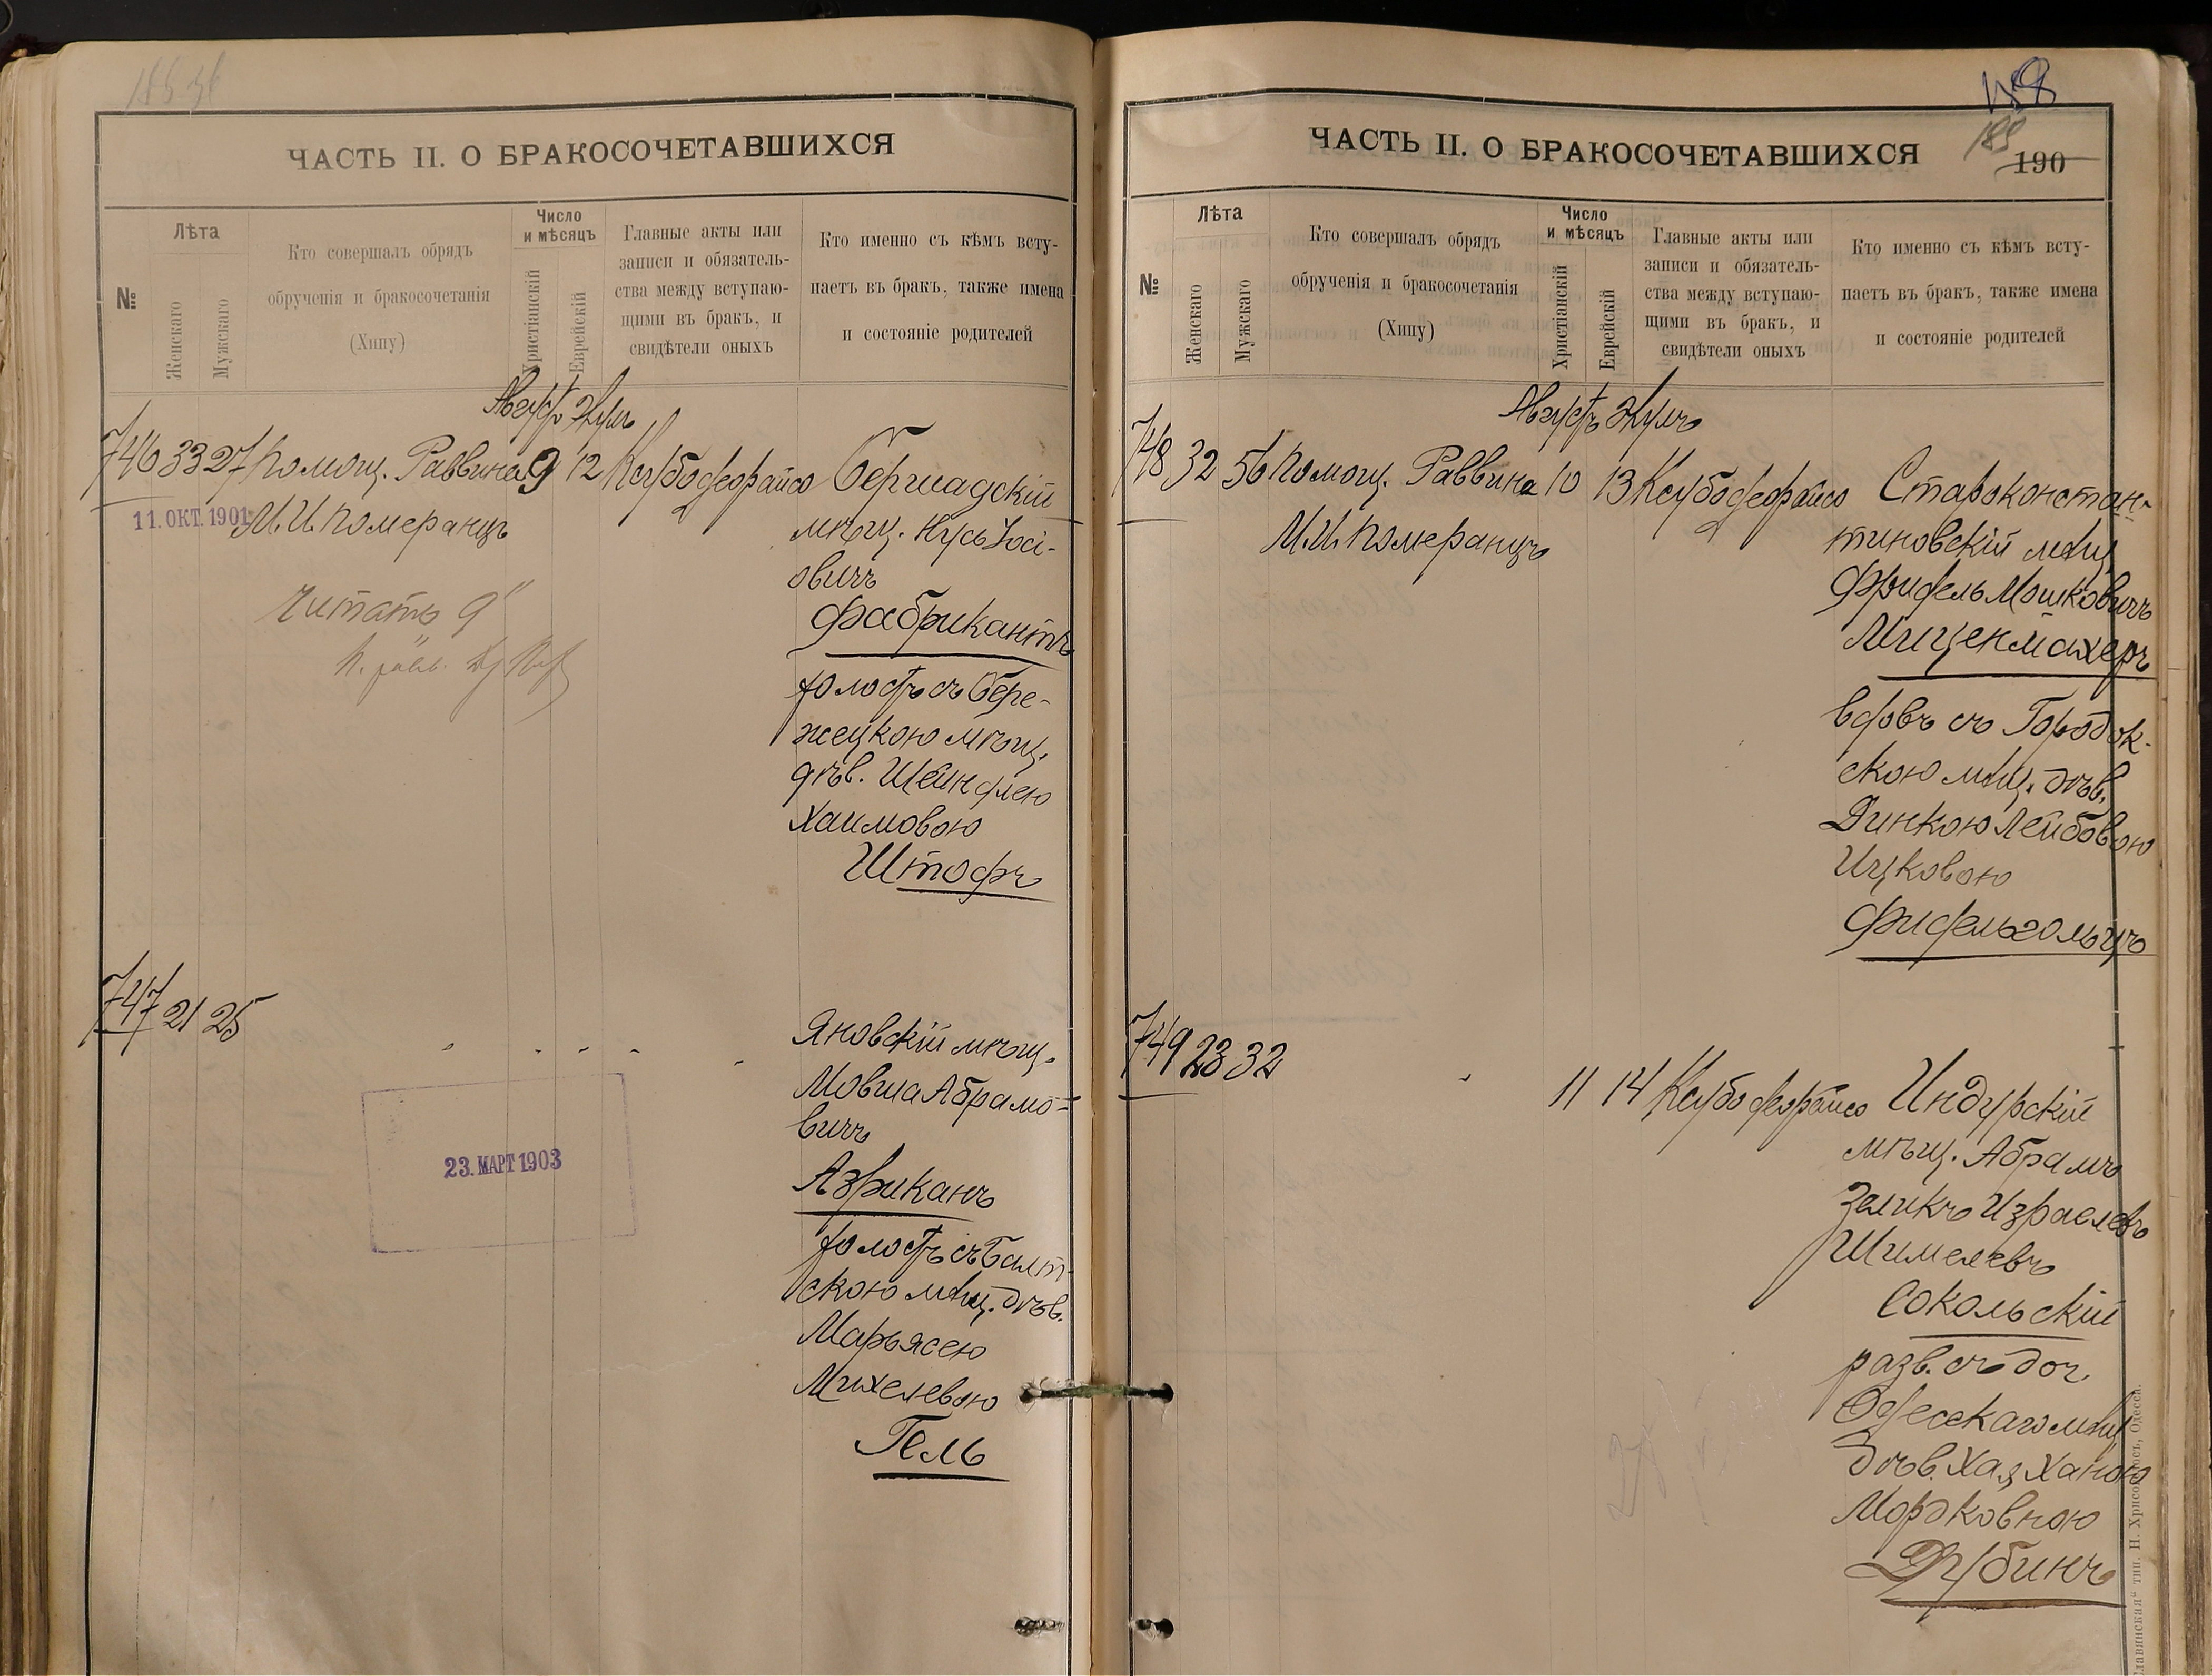 ЧАСТЬ II. О БРАКОСОЧЕТАВШИХСЯ
№
Лѣта
Женскаго
Мужскаго
Кто совершалъ обрядъ
обрученія и бракосочетанія
(Хипу)
Число
и мѣсяцъ
Христіанскій
Еврейскій
Главные акты или
записи и обязатель-
ства между вступаю-
щими въ бракъ, и
свидѣтели оныхъ
Кто именно съ кѣмъ всту-
паетъ въ бракъ, также имена
и состояніе родителей
746 33 27 Помощ. Раввина 9 12 Бершадскій
11. ОКТ. 1901 М.И. Померанцъ
мѣщ. Нусь Іосі-
овичъ
Фабрикантъ
читать 9
холостъ съ Бере-
жецкою мѣщ.
дѣв. Шейндлею
Хаимовою
Штофъ
747 21 25
Яновскій мѣщ.
Мовша Абрамо-
вичъ
Азриканъ
холостъ съ Балт-
скою мѣщ. дѣв.
Марьясею
Михелевою
Гель
23. МАРТ 1903
ЧАСТЬ II. О БРАКОСОЧЕТАВШИХСЯ
189
190
№
Лѣта
Женскаго
Мужскаго
Кто совершалъ обрядъ
обрученія и бракосочетанія
(Хипу)
Число
и мѣсяцъ
Христіанскій
Еврейскій
Главные акты или
записи и обязатель-
ства между вступаю-
щими въ бракъ, и
свидѣтели оныхъ
Кто именно съ кѣмъ всту-
паетъ въ бракъ, также имена
и состояніе родителей
748 32 56 Помощ. Раввина 10 13 Староконстан-
М.И. Померанцъ
тиновскій мѣщ.
Фридель Мошковичъ
Миценмахеръ
вдовъ съ Городок-
скою мѣщ. дѣв.
Динкою Лейбовою
Ицковою
Фидельгольцъ
749 23 32 11 14 Индурскій
мѣщ. Абрамъ
Зеликъ Израелевъ
Шимелевъ
Сокольскій
разв. съ доч.
Одесскаго мѣщ.
дѣв. Хая Ханою
Мордковною
Дубинъ
тип. Н. Хрисогелосъ, Одесса.